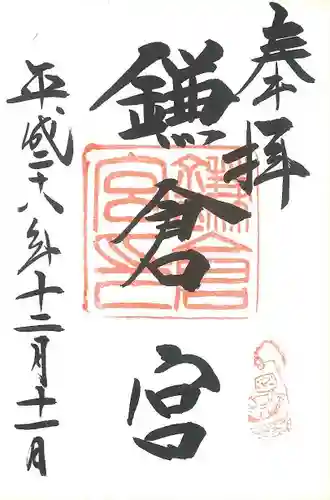 奉拝
鎌倉宮
平成二十八年十二月十一日
鎌倉
宮印